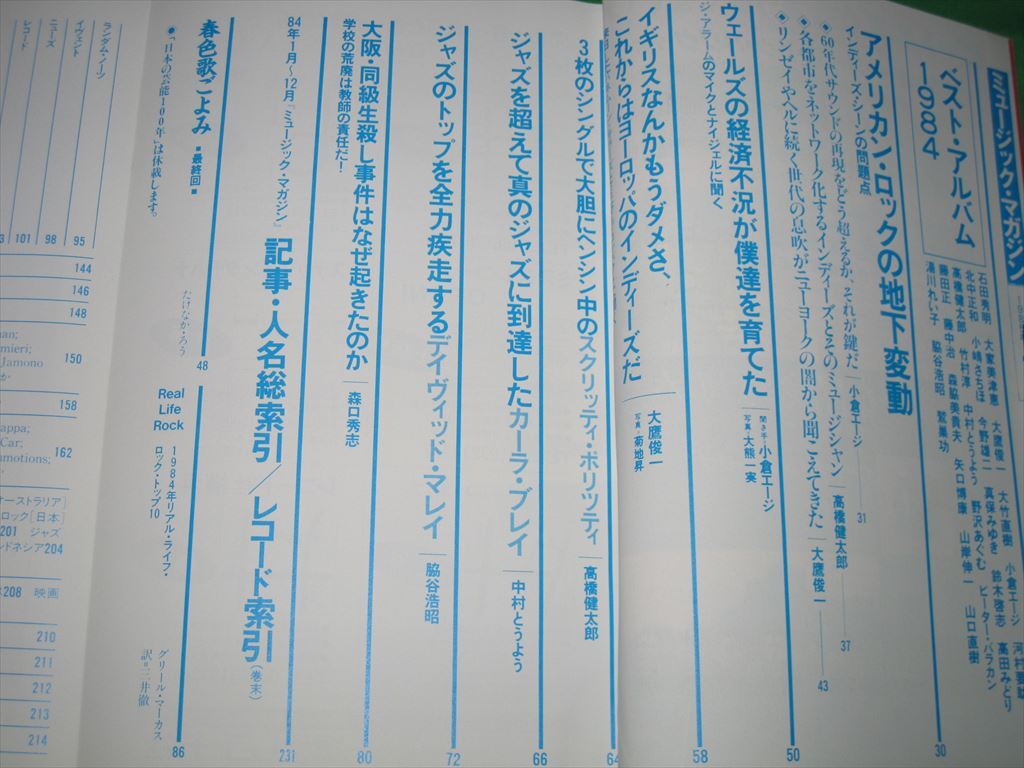 ミュージック・マガジン
ベスト・アルバム
1984
石田秀明 大家美津恵 大鷹俊一 大竹直樹 小倉エージ 河村要助
北中正和 小嶋さちほ 今野雄二 真保みゆき 鈴木啓志 高田みどり
高橋健太郎 竹村淳 中村とうよう 野沢あぐむ ピーター・バラカン
藤田正 藤中治 森脇美貴夫 矢口博康 山岸伸一 山口直樹
湯川れい子 脇谷浩昭 鷲巣功
30
アメリカン・ロックの地下変動
インディーズ・シーンの問題点
◆60年代サウンドの再現などどう超えるか、それが鍵だ 小倉エージ 31
◆各都市をネットワーク化するインディーズとそのミュージシャン 高橋健太郎 37
◆リンゼイやヘルに続く世代の息吹がニューヨークの闇から聞こえてきた 大鷹俊一 43
ウェールズの経済不況が僕達を育てた
聞き手・小倉エージ
写真・大熊一実
50
ジ・アラームのマイクとナイジェルに聞く
イギリスなんかもうダメさ、
これからはヨーロッパのインディーズだ
大鷹俊一
写真・菊地昇
58
3枚のシングルで大胆にヘンシン中のスクリッティ・ポリッティ 高橋健太郎 64
ジャズを超えて真のジャズに到達したカーラ・ブレイ 中村とうよう 66
ジャズのトップを全力疾走するデイヴィッド・マレイ 脇谷浩昭 72
大阪・同級生殺し事件はなぜ起きたのか 森口秀志 80
学校の荒廃は教師の責任だ!
84年1月〜12月『ミュージック・マガジン』 記事・人名総索引/レコード索引(巻末) 231
春色歌ごよみ ■最終回■ たけなか・ろう 48
Real
Life
Rock
1984年リアル・ライフ・
ロック・トップ10
グリール・マーカス
訳=三井徹
86
●“日本の芸能100年”は休載します。
ランダム・ノーツ 95
イヴェント 98
ニューズ 101
レコード
144
146
148
150
158
162
オーストラリア]
ロック[日本]
201 ジャズ
ンドネシア204
208 映画
210
211
212
213
214